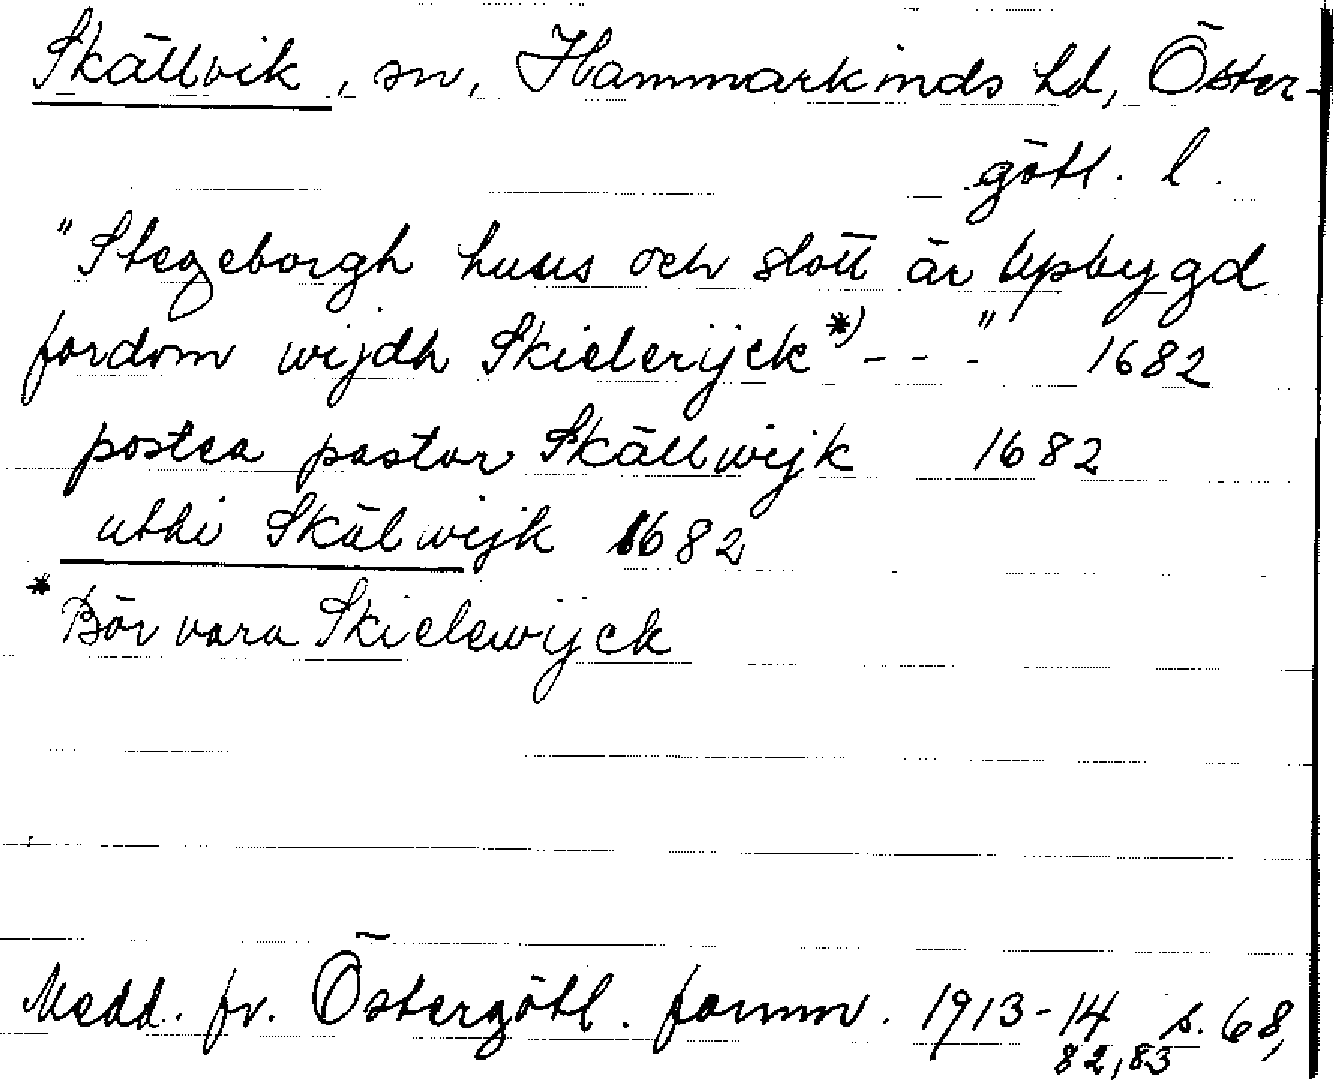 Skällvik, sn, Hammarkinds hd, Öster-
götl. l.
"Stegeborgh huus och slott är Upbygd
fordom wijdh Skielerijck*) - - - " 1682
postea pastor Skällwijk 1682
uthi Skälwijk 1682
* Bör vara Skielewijck
Medd. fr. Östergötl. fornm. 1913-14 s. 68,
82, 83